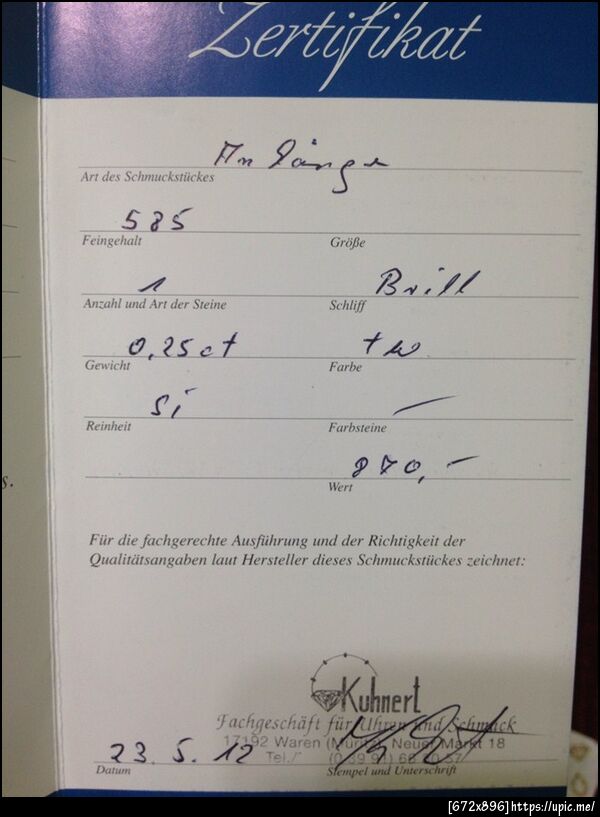 Zertifikat
Anhänger
Art des Schmuckstückes
585
Feingehalt Größe
1 Brill
Anzahl und Art der Steine Schliff
0,25 ct tw
Gewicht Farbe
Si —
Reinheit Farbsteine
870,-
Wert
s.
Für die fachgerechte Ausführung und der Richtigkeit der
Qualitätsangaben laut Hersteller dieses Schmuckstückes zeichnet:
Kuhnert
Fachgeschäft für Uhren und Schmuck
17192 Waren (Müritz) Neuer Markt 18
Tel./
23.5.12
Datum Stempel und Unterschrift
[672x896]https://upic.me/